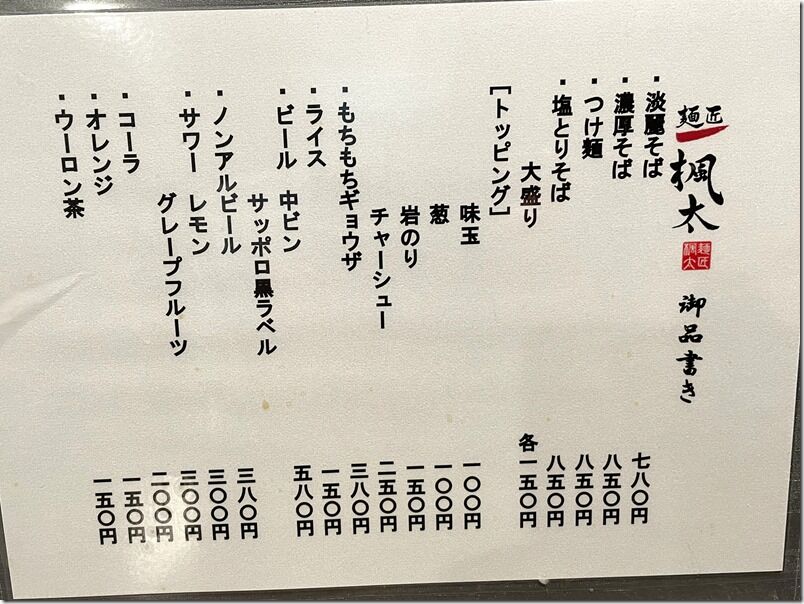 麺匠 楓太 御品書き
麺匠楓太
▪淡麗そば 七八〇円
▪濃厚そば 八五〇円
▪つけ麺 八五〇円
▪塩とりそば 八五〇円
大盛り 各一五〇円
[トッピング]
味玉 一〇〇円
葱 一〇〇円
岩のり 一五〇円
チャーシュー 二五〇円
▪もちもちギョウザ 三八〇円
▪ライス 一五〇円
▪ビール 中ビン 五八〇円
サッポロ黒ラベル
▪ノンアルビール 三八〇円
▪サワー レモン 三〇〇円
グレープフルーツ 三〇〇円
▪コーラ 二〇〇円
▪オレンジ 一五〇円
▪ウーロン茶 一五〇円